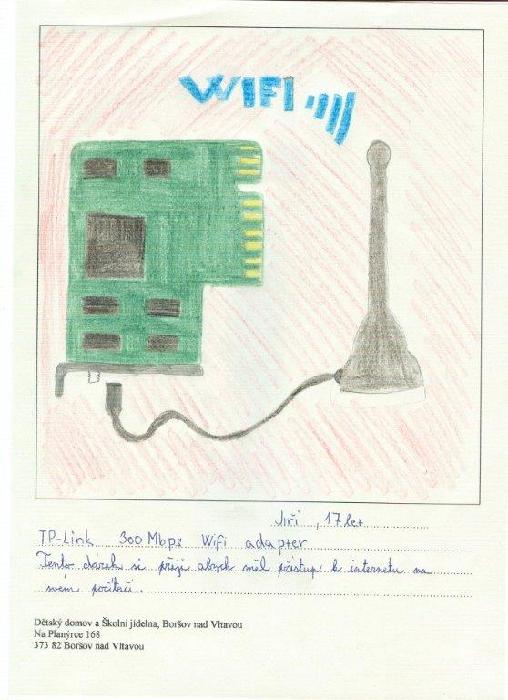 WIFI
Jiří, 17 let
TP-Link 300 Mbps Wifi adapter
Tento dárek si přeji abych měl přístup k internetu na
svém počítači.
Dětský domov a Školní jídelna, Boršov nad Vltavou
Na Planýrce 168
373 82 Boršov nad Vltavou